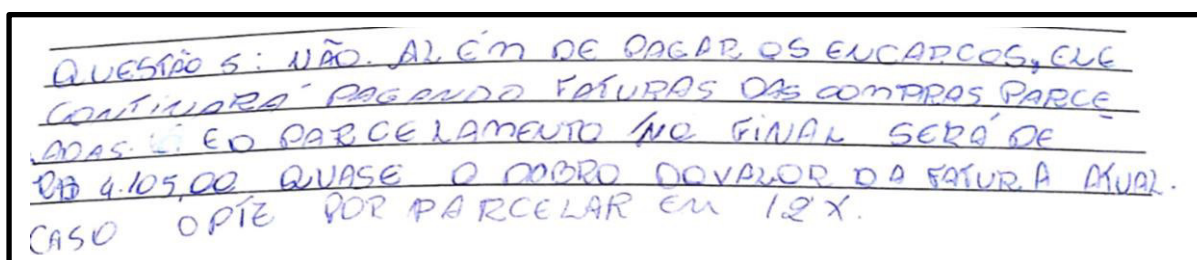 QUESTÃO 5: NÃO. ALÉM DE PAGAR OS ENCARGOS, ELE
CONTINARÁ PAGANDO FATURAS DAS COMPRAS PARCE
LADAS. E O PARCELAMENTO NO FINAL SERÁ DE
R$ 4.105,00 QUASE O DOBRO DO VALOR DA FATURA ATUAL.
CASO OPTE POR PARCELAR EM 12X.